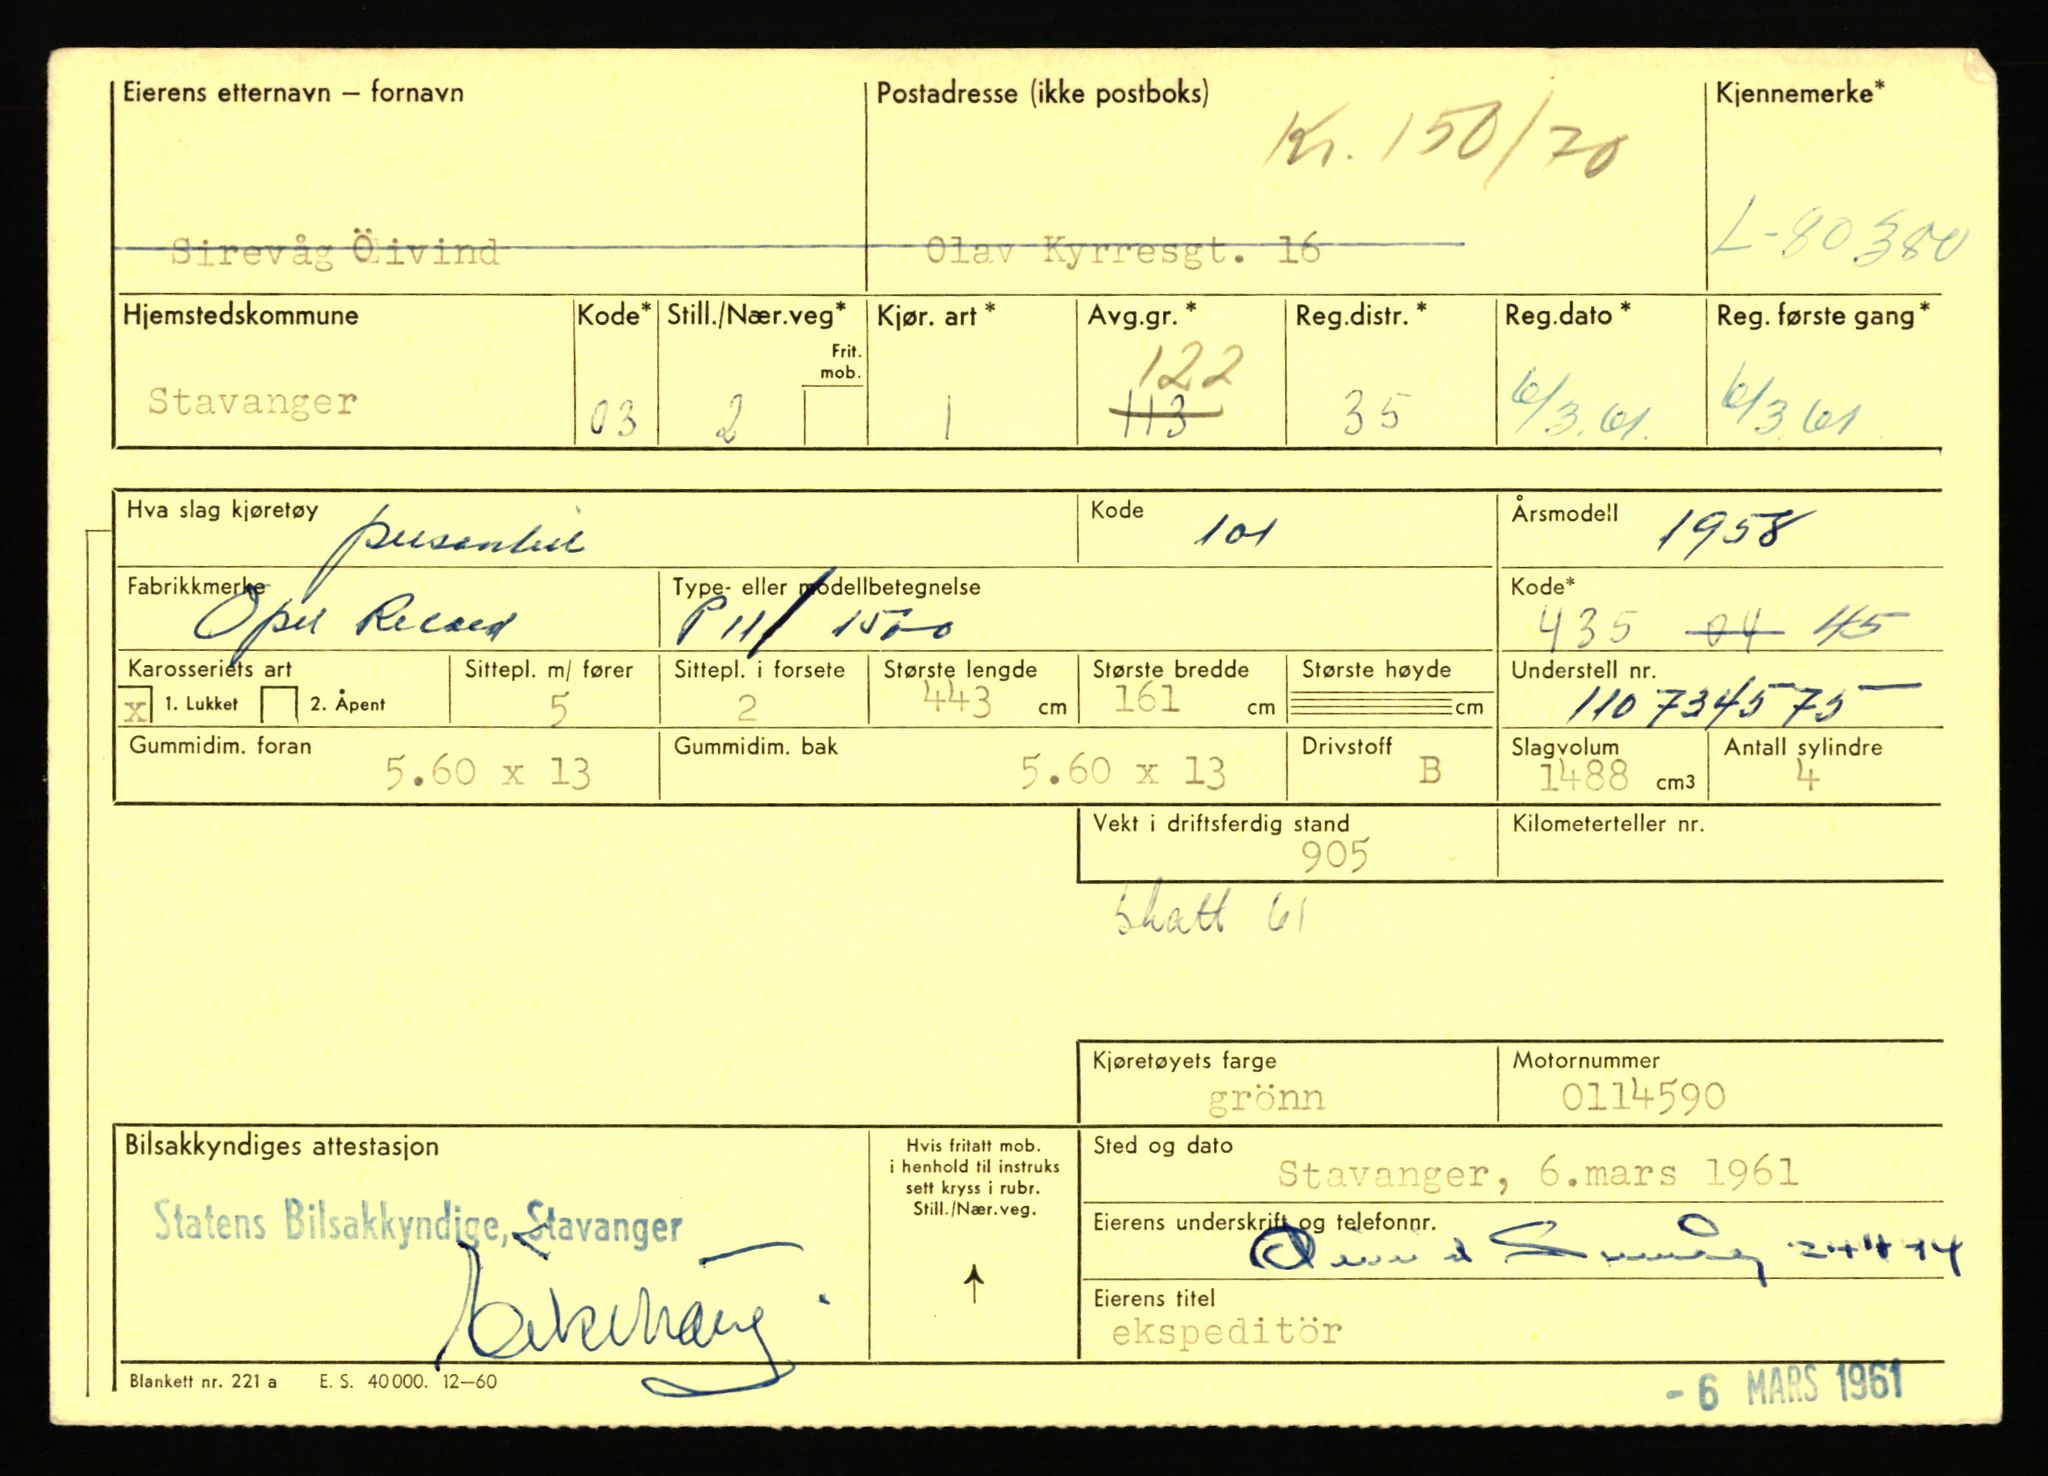 Eierens etternavn – fornavn Postadresse (ikke postboks) Kjennemerke*
Kr. 150/70
Sirevåg Öivind Olav Kyrresgt. 16 L-80380
Hjemstedskommune Kode* Still./Nær.veg* Kjør. art* Avg.gr.* Reg.distr.* Reg.dato* Reg. første gang*
Frit. mob.
122
Stavanger 03 2 1 113 35 6/3.61. 6/3.61
Hva slag kjøretøy personbil Kode 101 Årsmodell 1958
Fabrikkmerke Type- eller modellbetegnelse Kode*
Opel Record P 11/ 1500 435 04 45
Karosseriets art Sittepl. m/ fører Sittepl. i forsete Største lengde Største bredde Største høyde Understell nr.
x 1. Lukket 2. Åpent 5 2 443 cm 161 cm cm 110734575
Gummidim. foran Gummidim. bak Drivstoff Slagvolum Antall sylindre
5.60 x 13 5.60 x 13 B 1488 cm3 4
Vekt i driftsferdig stand Kilometerteller nr.
905
Skatt 61
Kjøretøyets farge Motornummer
grönn 0114590
Bilsakkyndiges attestasjon
Hvis fritatt mob.
i henhold til instruks
sett kryss i rubr.
Still./Nær.veg.
Sted og dato
Stavanger, 6.mars 1961
Statens Bilsakkyndige, Stavanger
Eierens underskrift og telefonnr.
Eierens titel
ekspeditör
Blankett nr. 221 a E. S. 40000. 12–60
- 6 MARS 1961